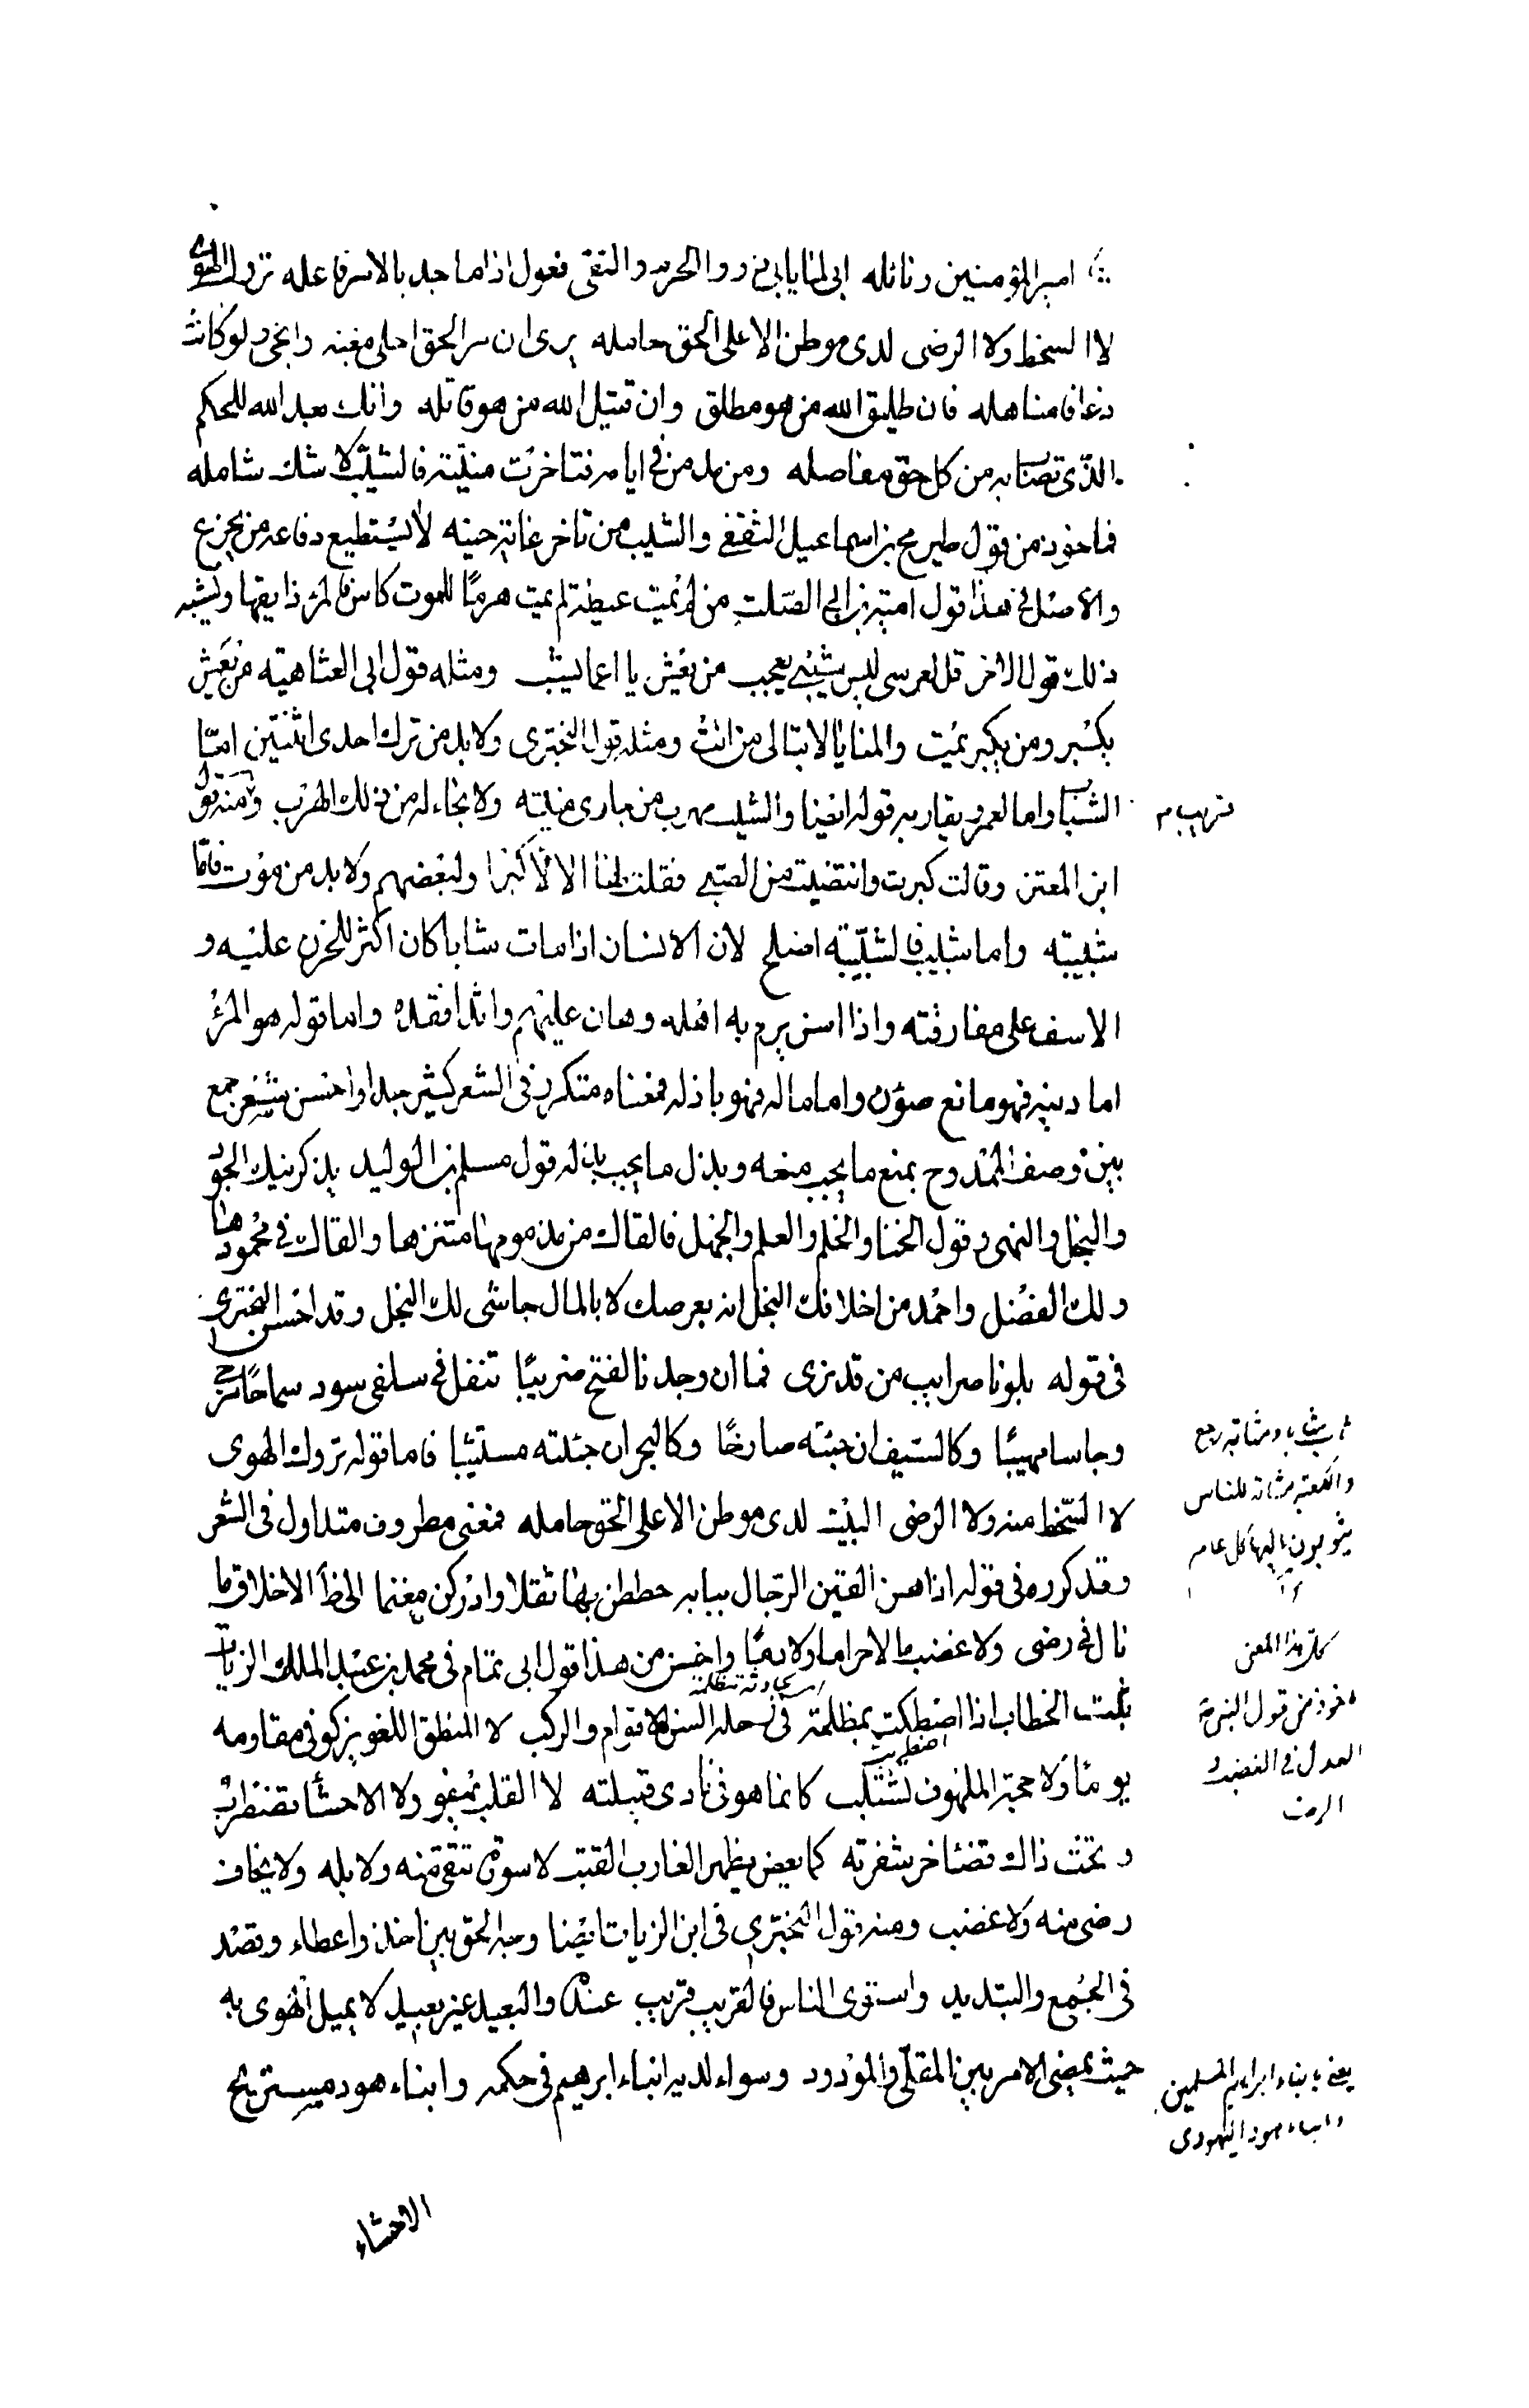 امير المؤمنين ونائله ابى المنايا بى ذوو الحزم والتقى فعول اذا ما جد بالامر فاعله تروك الهوى
لا السخط ولا الرضى لدى موطن الا على الحق حامله يرى ان مر الحق احلى مغبه وانجى ولو كانت
ذعافا مناهله فان طليق الله من هو مطلق وان قتيل الله من هو قاتله وانك بعد الله للحكم
الذى تصاب به من كل حق مفاصله ومن مد من فى ايامه فتاخرت منيته فالشيب لا شك شامله
فماخوذ من قول طريح بن اسماعيل الثقفى والشيب من تاخر غايته حينه لا يستطيع دفاعه من يجزع
والاصل فى هذا قول امية بن ابى الصلت من لم يمت عبطة يمت هرما للموت كاس فالمرء ذايقها ويشبه
ذلك قول الاخر قل لعرسى ليس شيبى بعجب من يعش يا اعما يشب ومثله قول ابى العتاهية من يعش
يكبر ومن يكبر يمت والمنايا لا تبالى من اتت ومثله قول البحترى ولا بد من ترك احدى اثنتين اما
الشباب واما العمر ويقاربه قوله ايضا والشيب مهرب من جارى منيته ولا نجاء له من ذلك الهرب ومنه قول
قريب م
ابن المعتز وقالت كبرت وانتضيت من الصبى فقلت لها الا لاكبرا ولبعضهم ولا بد من موت فاما
شبيبته واما شيب فالشبيبه اصلح لان الانسان اذا مات شابا كان اكثر للحزن عليه و
الاسف على مفارقته واذا اسن برم به اهله وهان عليهم وانه افقده واما قوله هو المرء
اما دينه فهو مانع صؤن واما ماله فهو باذله فمعناه متكرر فى الشعر كثير جدا واحسن شعر جمع
بين وصف الممدوح بمنع ما يجب منعه وبذل ما يجب بذله قول مسلم بن الوليد يذكرنيك الجود
والبخل والنهى وقول الخنا والحلم والعلم والجهل فالقاك من مذمومها متنزها والقاك فى محمودها
ولك الفضل واحمد من اخلاقك البخل انه بعرضك لا بالمال حاشى لك البخل وقد احسن البحترى
فى قوله بلونا ضرايب من قد نرى فما ان وجدنا لفتح ضريبا تنقل فى سلفى سودد سماحا مرجى
وباسا مهيبا وكالسيف ان جئته صارخا وكالبحر ان جئته مستثيبا فاما قوله تروك الهوى
لا السخط منه ولا الرضى البيت لدى موطن الا على الحق حامله فمعنى مطروف متداول فى الشعر
وقد كرره فى قوله اذا هن القين الرحال ببابه حططن بها ثقلا وادركن مغنما الى طاهر الاخلاق ما
نال فى رضى ولا غضب مالا حراما ولا دما واحسن من هذا قول ابى تمام فى محمد بن عبد الملك الزيات
ثبت الخطاب اذا اصطكت بمظلمة فى رحله السن الاقوام والركب لا المنطق اللغو يزكو فى مقاومه
اضطربت
يوما ولا حجة الملهوف تستلب كانما هو فى نادى قبيلته لا القلب يهفو ولا الاحشا تضطرب
وتحت ذاك قضا حز شفرته كما يعض بظهر الغارب القتب لا سورة تتقى منه ولا بله ولا يخاف
رضى منه ولا غضب ومنه قول البحترى فى ابن الزيات ايضا وجه الحق بين اخذ واعطاء وقصد
فى الجمع والتبديد واستوى الناس فالقريب قريب عنده والبعيد غير بعيد لا يميل الهوى به
حيث يمضى الامر بين المقلى والمودود وسواء لديه ابناء ابرهيم فى حكمه وابناء هود مستريح
والكعبة مثابة للناس
يثوبون اليها كل عام
كل هذا المعنى
ماخوذ من قول النبى
العدل فى الغضب و
الرضى
يعنى بابناء ابراهيم المسلمين
وابناء هود اليهودى
الاحشاء